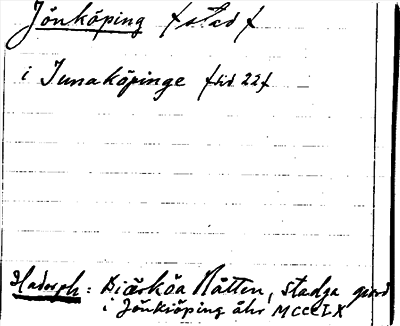 Jönköping (stad)
i Junaköpinge (sid 22)
Hadorph: Biärköa Rätten, stadga giord
i Jönkiöping åhr MCCCLX